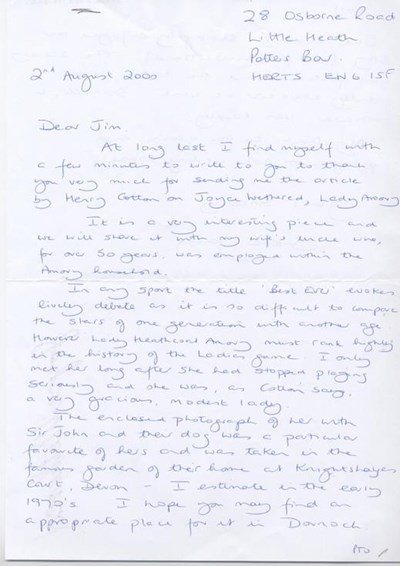 28 Osborne Road
Little Heath
Potters Bar
2nd August 2000 HERTS EN6 1SF
Dear Jim,
At long last I find myself with
a few minutes to write to you to thank
you very much for sending me the article
by Henry Cotton on Joyce Wethered, Lady Amory
It is a very interesting piece and
we will share it with my wife's uncle who,
for over 50 years, was employed within the
Amory household.
In any sport the title 'Best Ever' evokes
lively debate as it is so difficult to compare
the stars of one generation with another age
However Lady Heathcoat Amory must rank highly
in the history of the Ladies game. I only
met her long after she had stopped playing
seriously and she was, as Cotton says,
a very gracious, modest lady.
The enclosed photograph of her with
Sir John and their dog was a particular
favourite of hers and was taken in the
famous garden of their home at Knightshayes
Court, Devon - I estimate in the early
1970's. I hope you may find an
appropriate place for it in Dornoch
PTO /